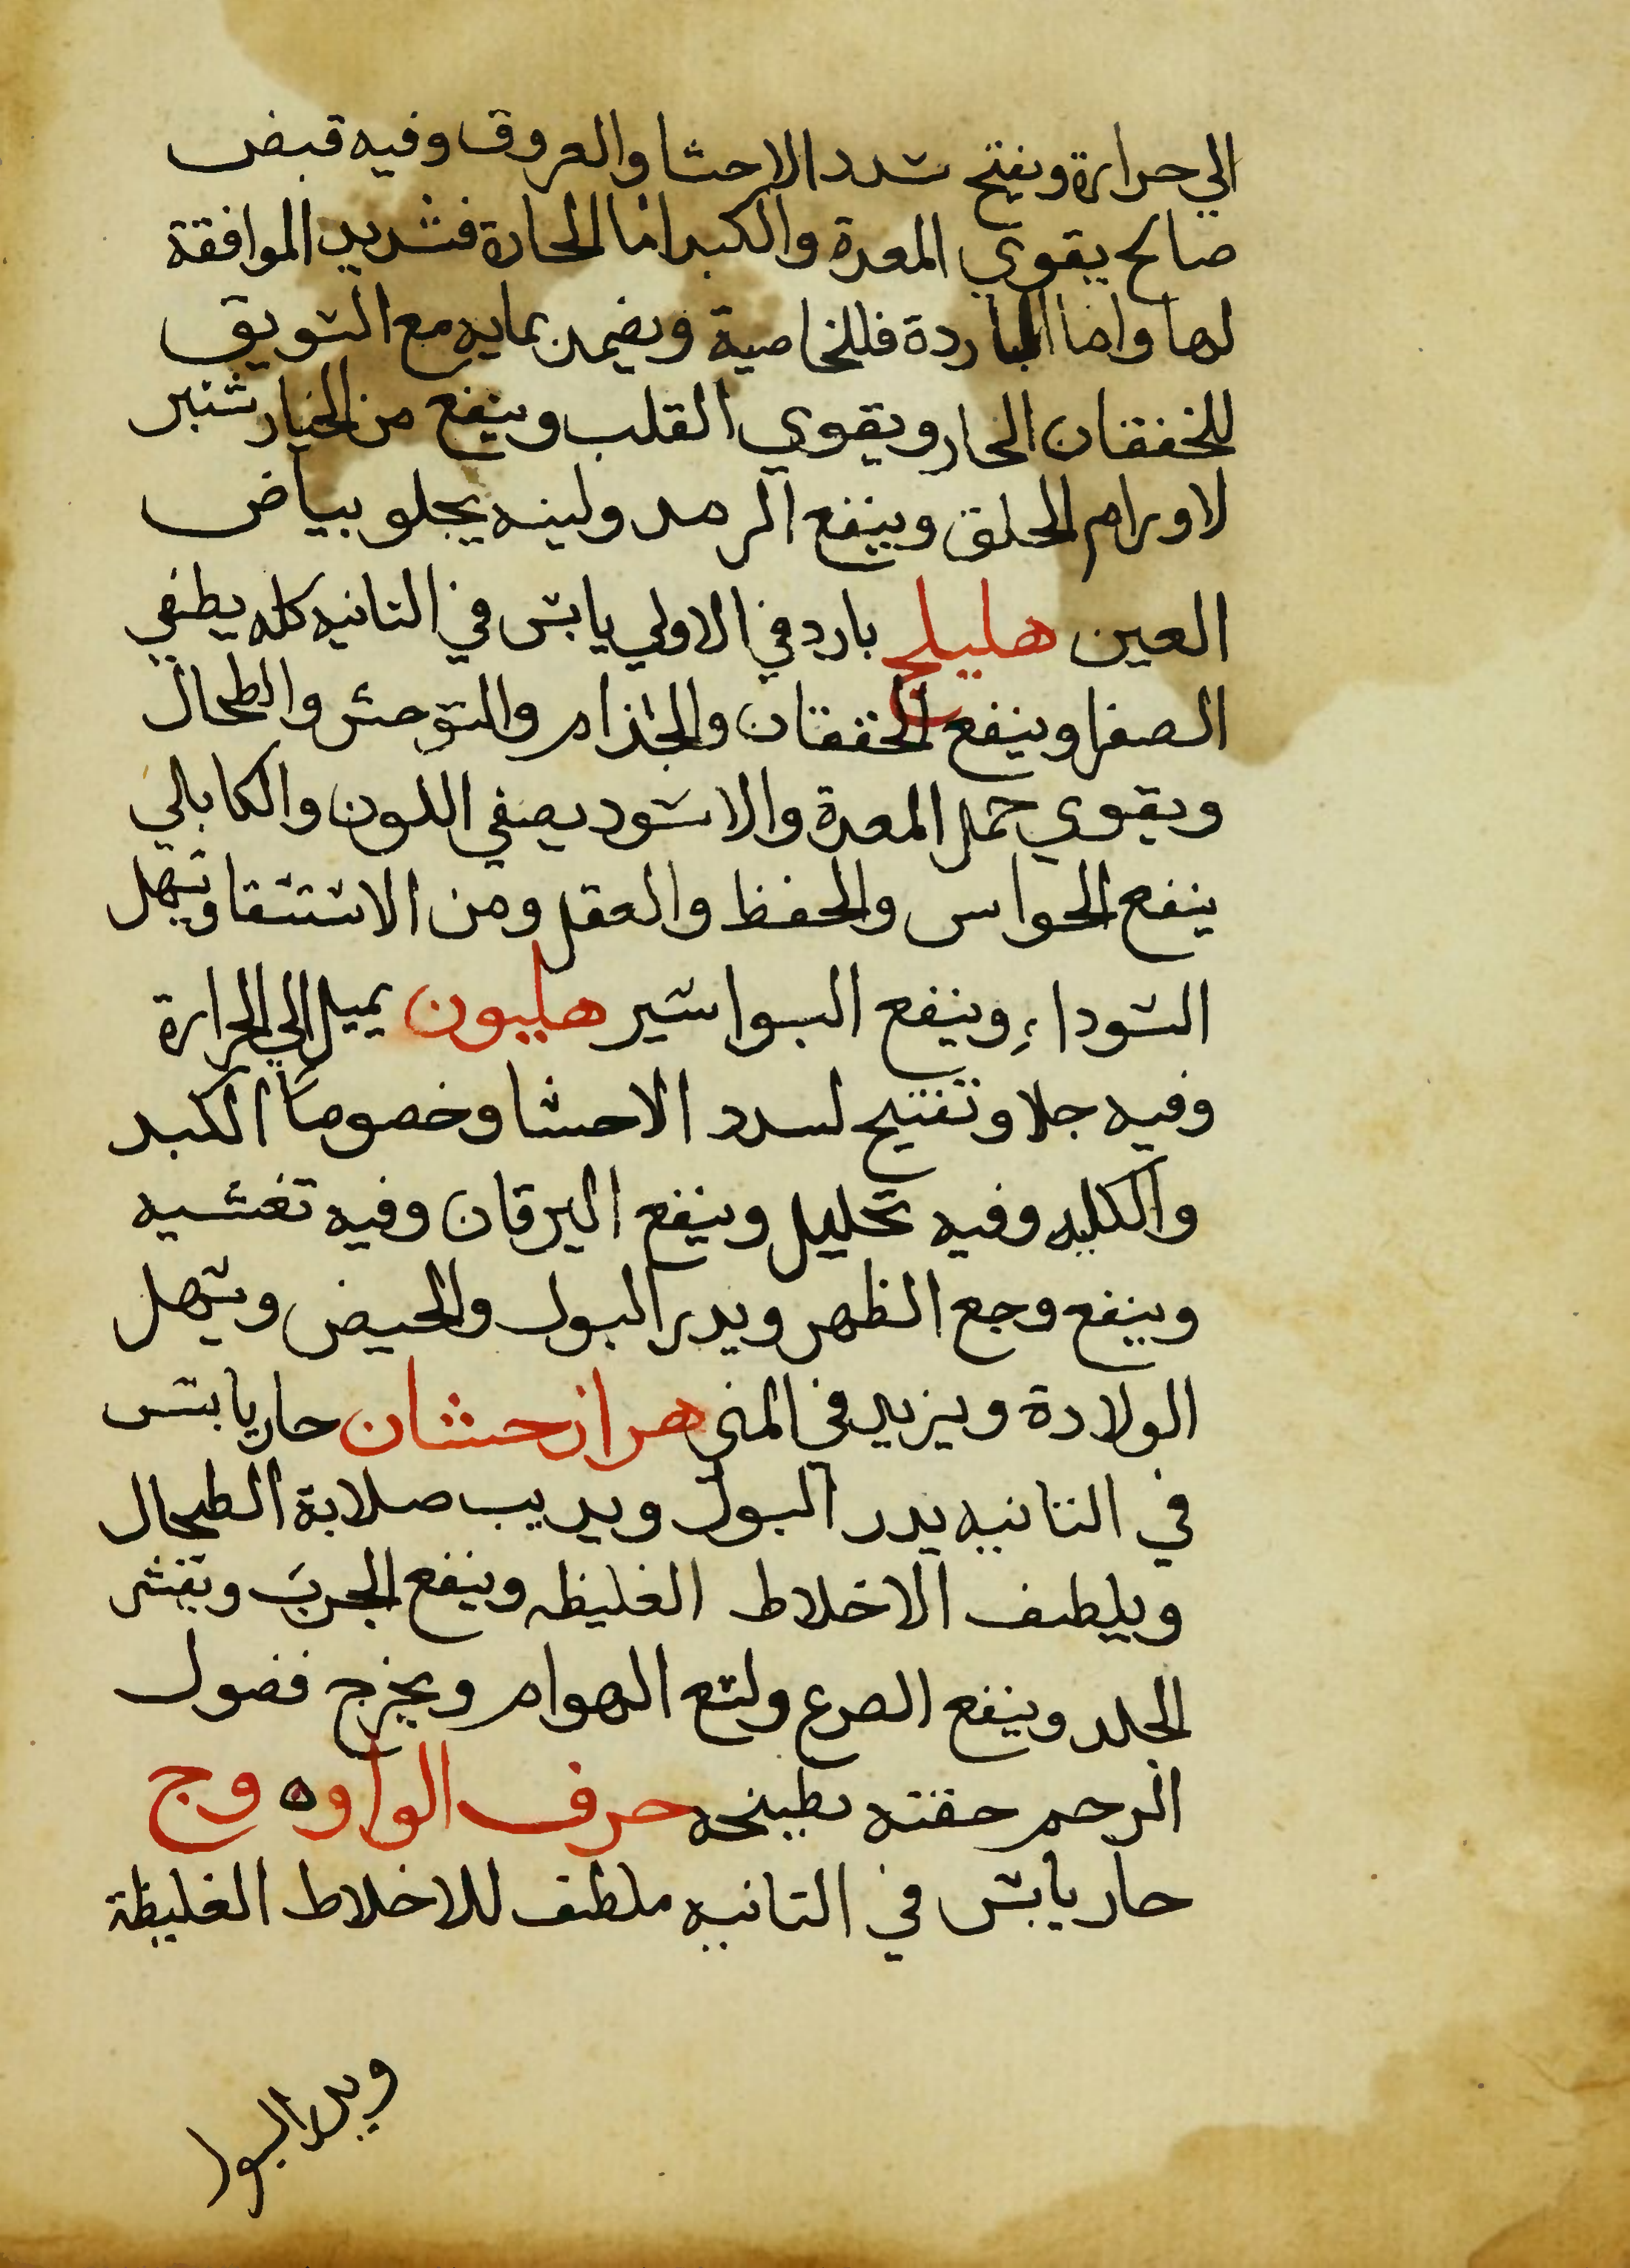 الي حرارة ويفتح سدد الاحشا والعروق وفيه قبض
صالح يقوي المعدة والكبد اما الحارة فشديد الموافقة
لها واما الباردة فللخاصية ويضمد بمايه مع السويق
للخفقان الحار ويقوي القلب وينفع من الخيار شنبر
لاورام الحلق وينفع الرمد ولبنه يجلو بياض
العين هليلج بارد في الاولي يابس في الثانيه كله يطفي
الصفرا وينفع الخفقان والجذام والتوحش والطحال
ويقوي خمل المعدة والاسود يصفي اللون والكابلي
ينفع الحواس والحفظ والعقل ومن الاستسقا ويسهل
السوداء وينفع البواسير هليون يميل الي الحرارة
وفيه جلا وتفتيح لسدد الاحشا وخصوصا الكبد
والكليه وفيه تحليل وينفع اليرقان وفيه تغثيه
وينفع وجع الظهر ويدر البول والحيض ويسهل
الولادة ويزيد في المني هزازحشان حار يابس
في الثانيه يدر البول ويديب صلابة الطحال
ويلطف الاخلاط الغليظه وينفع الجرب وتقشر
الجلد وينفع الصرع ولسع الهوام ويخرج فضول
الرحم حقنه بطبيخه حرف الواو ه وج
حار يابس في الثانيه ملطف للاخلاط الغليظة
ويدر البول